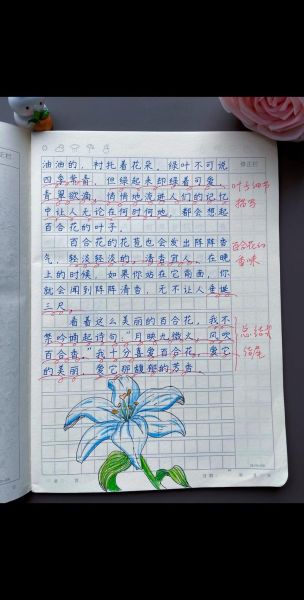 油油的，衬托着花朵，绿叶不可说
四季常青，但绿起来却绿着可爱，
青翠欲滴，悄悄地流进人们的记忆
中让人无论在何时何地，都会想起
百合花的叶子。
叶子细节
描写
百合花的花苞也会发出阵阵香
气，轻淡轻淡的，清香宜人，在晚
上的时候，如果你站在它前面，你
就会闻到阵阵清香，无不让人垂涎
三尺。
百合花的
香味
看着这么美丽的百合花，我不
禁吟诵起诗句：“月映九微火，风吹
百合香。”我十分喜爱百合花，爱它
的美丽，爱它那馥郁的芳香。
总结全
结尾